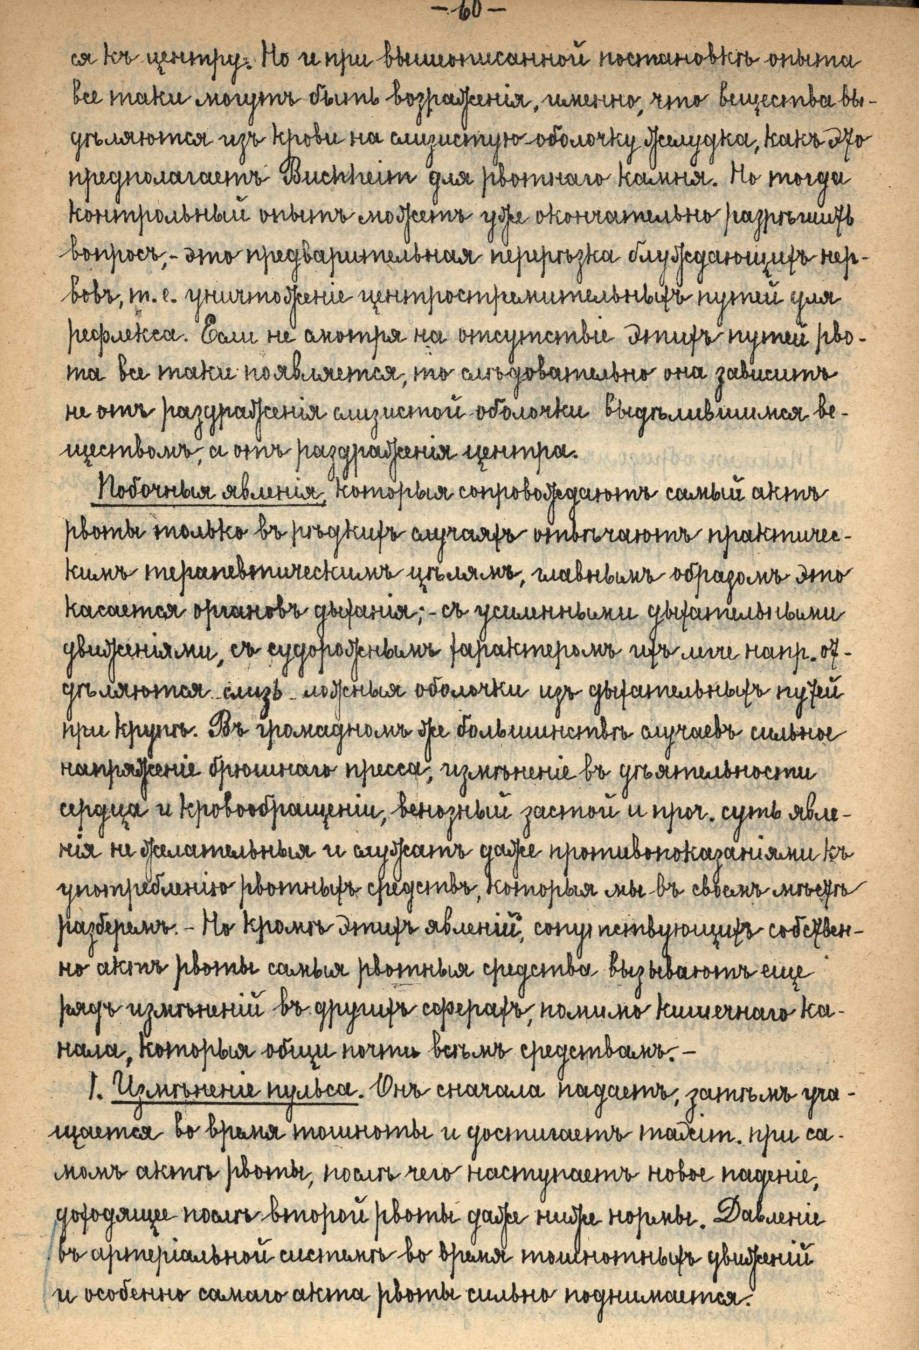 — 60 —
ся къ центру. Но и при вышеописанной постановкѣ опыта
все таки могутъ быть возраженія, именно, что вещества вы-
дѣляются изъ крови на слизистую оболочку желудка, какъ это
предполагаетъ Buchheim для рвотнаго камня. Но тогда
контрольный опытъ можетъ уже окончательно разрѣшить
вопросъ, - это предварительная перерѣзка блуждающихъ нер-
вовъ, т. е. уничтоженіе центростремительныхъ путей для
рефлекса. Если не смотря на отсутствіе этихъ путей рво-
та все таки появляется, то слѣдовательно она зависитъ
не отъ раздраженія слизистой оболочки выдѣлившимся ве-
ществомъ, а отъ раздраженія центра.
Побочныя явленія, которыя сопровождаютъ самый актъ
рвоты только въ рѣдкихъ случаяхъ отвѣчаютъ практичес-
кимъ терапевтическимъ цѣлямъ, главнымъ образомъ это
касается органовъ дыханія; - съ усиленными дыхательными
движеніями, съ судорожнымъ характеромъ ихъ легче напр. от-
дѣляются слизь ложныя оболочки изъ дыхательныхъ путей
при крупѣ. Въ громадномъ же большинствѣ случаевъ сильное
напряженіе брюшнаго пресса, измѣненіе въ дѣятельности
сердца и кровообращеніи, венозный застой и проч. суть явле-
нія не желательныя и служатъ даже противопоказаніями къ
употребленію рвотныхъ средствъ, которыя мы въ своемъ мѣстѣ
разберемъ. - Но кромѣ этихъ явленій, сопутствующихъ собствен-
но актъ рвоты самыя рвотныя средства вызываютъ еще
рядъ измѣненій въ другихъ сферахъ, помимо кишечнаго ка-
нала, которыя общи почти всѣмъ средствамъ. -
1. Измѣненіе пульса. Онъ сначала падаетъ, затѣмъ уча-
щается во время тошноты и достигаетъ maxim. при са-
момъ актѣ рвоты, послѣ чего наступаетъ новое паденіе,
доходящее послѣ второй рвоты даже ниже нормы. Давленіе
въ артеріальной системѣ во время тошнотныхъ движеній
и особенно самаго акта рвоты сильно поднимается.